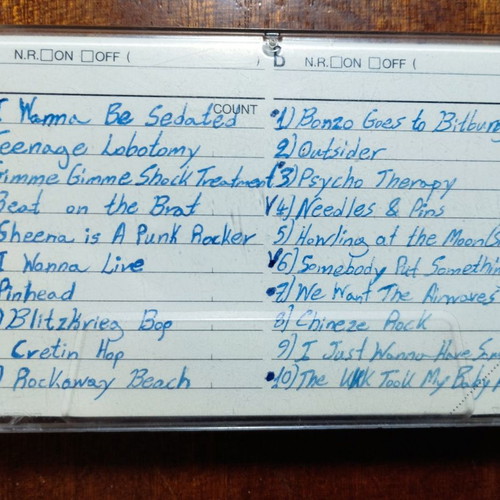 N.R. □ON □OFF (          )
COUNT
I Wanna Be Sedated
eenage Lobotomy
imme Gimme Shock Treatment
Beat on the Brat
Sheena is A Punk Rocker
I Wanna Live
Pinhead
) Blitzkrieg Bop
Cretin Hop
) Rockaway Beach
B N.R. □ON □OFF (
1) Bonzo Goes to Bitburg
2) Outsider
3) Psycho Therapy
4) Needles & Pins
5) Howling at the Moon (S
6) Somebody Put Somethin
7) We Want The Airwaves
8) Chineze Rock
9) I Just Wanna Have
10) The KKK Took My Baby